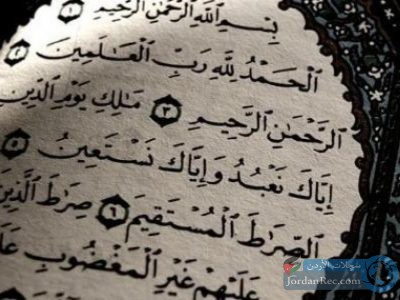 بِسْمِ ٱللَّهِ ٱلرَّحْمَٰنِ ٱلرَّحِيمِ ١
ٱلْحَمْدُ لِلَّهِ رَبِّ ٱلْعَٰلَمِينَ ٢
ٱلرَّحْمَٰنِ ٱلرَّحِيمِ ٣ مَٰلِكِ يَوْمِ ٱلدِّينِ
إِيَّاكَ نَعْبُدُ وَإِيَّاكَ نَسْتَعِينُ ٥
ٱلصِّرَٰطَ ٱلْمُسْتَقِيمَ ٦ صِرَٰطَ ٱلَّذِينَ
عَلَيْهِمْ غَيْرِ ٱلْمَغْضُوبِ
JordanRec.com